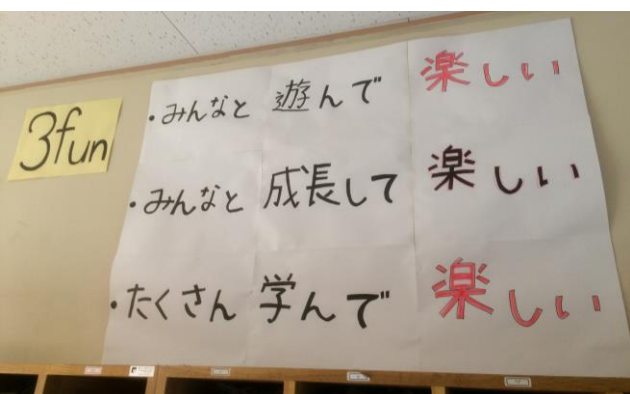 3fun
・みんなと 遊んで 楽しい
・みんなと 成長して 楽しい
・たくさん 学んで 楽しい